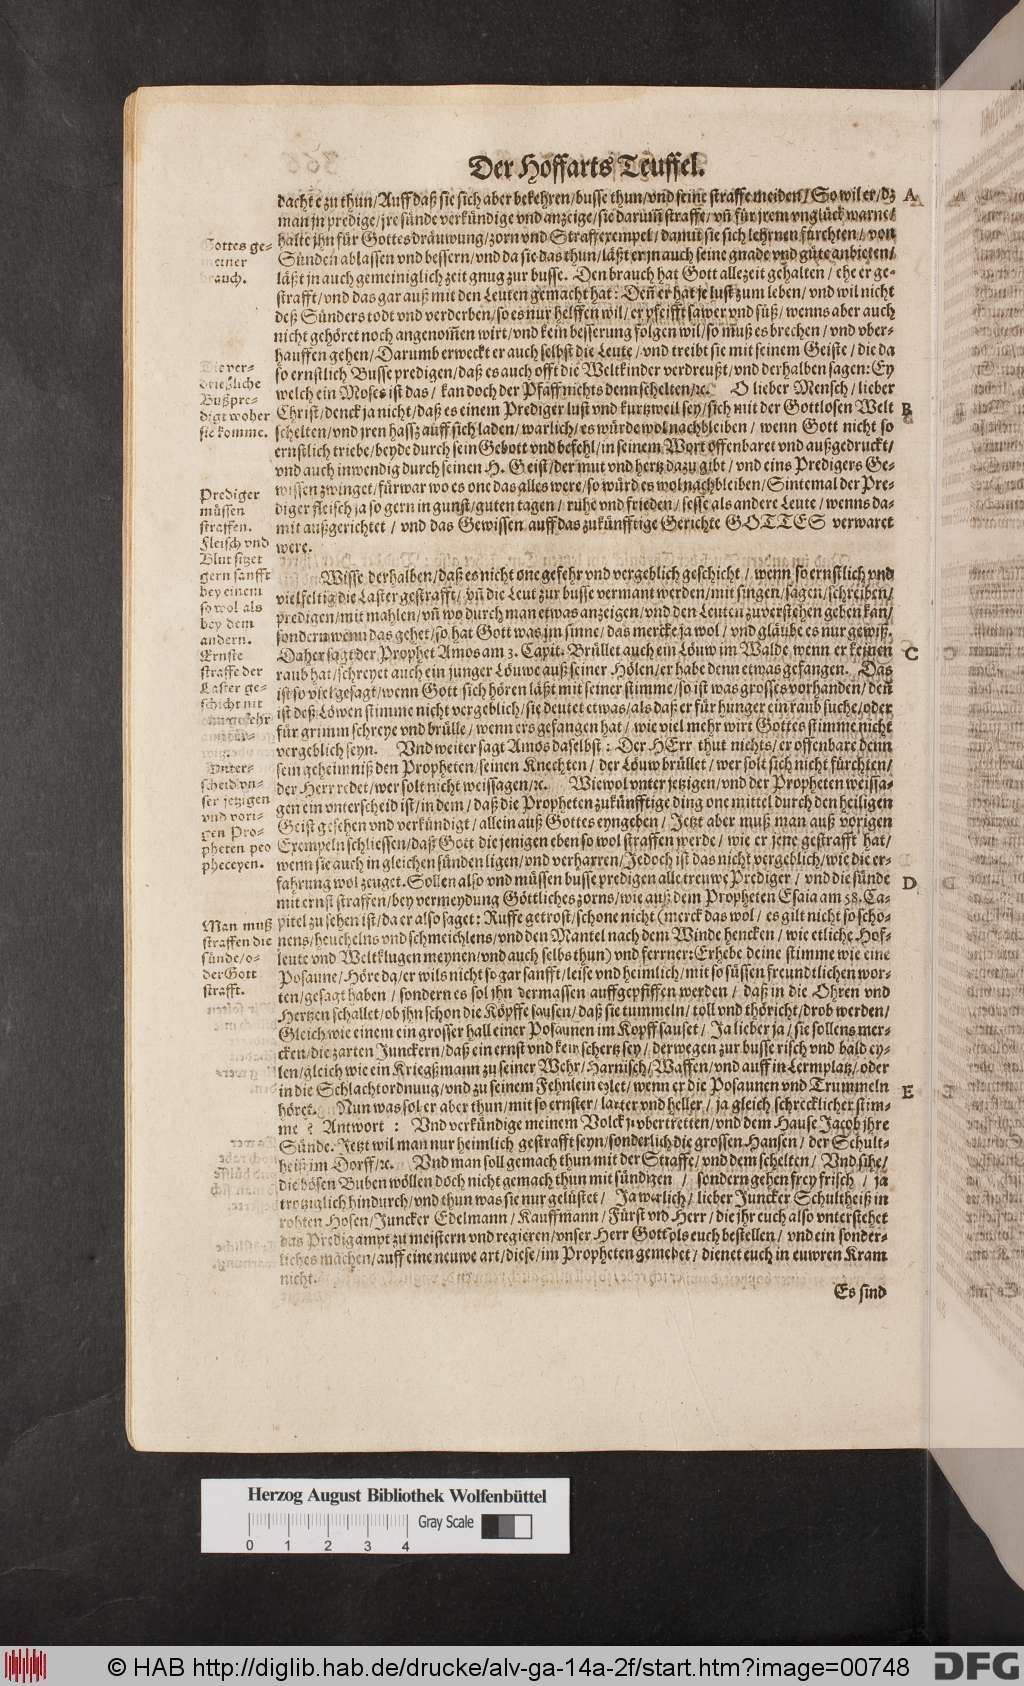 Der Hoffarts Teuffel.
dacht e zu thun/Auff daß sie sich aber bekehren/busse thun/vnd seine straffe meiden/So wil er/dz
man jn predige/jre sünde verkündige vnd anzeige/sie darum̃ straffe/vñ für jrem vnglück warne/
halte jhn für Gottes dräuwung/zorn vnd Straffexempel/damit sie sich lehrnen fürchten/von
Sünden ablassen vnd bessern/vnd da sie das thun/läßt er jn auch seine gnade vnd güte anbieten/
läßt jn auch gemeiniglich zeit gnug zur busse. Den brauch hat Gott allezeit gehalten/ehe er ge-
strafft/vnd das gar auß mit den Leuten gemacht hat: Deñ er hat je lust zum leben/vnd wil nicht
deß Sünders todt vnd verderben/so es nur helffen wil/er pfeifft sawer vnd süß/wenns aber auch
nicht gehöret noch angenom̃en wirt/vnd kein besserung folgen wil/so muß es brechen/vnd vber-
hauffen gehen/Darumb erweckt er auch selbst die Leute/vnd treibt sie mit seinem Geiste/die da
so ernstlich Busse predigen/daß es auch offt die Weltkinder verdreußt/vnd derhalben sagen: Ey
welch ein Moses ist das/kan doch der Pfaff nichts denn schelten/ꝛc. O lieber Mensch/lieber
Christ/denck ja nicht/daß es einem Prediger lust vnd kurtzweil sey/sich mit der Gottlosen Welt
schelten/vnd jren hassz auff sich laden/warlich/es würde wol nachbleiben/wenn Gott nicht so
ernstlich triebe/beyde durch sein Gebott vnd befehl/in seinem Wort offenbaret vnd außgedruckt/
vnd auch inwendig durch seinen H. Geist/der mut vnd hertz dazu gibt/vnd eins Predigers Ge-
wissen zwinget/fürwar wo es one das alles were/so würd es wol nachbleiben/Sintemal der Pre-
diger fleisch ja so gern in gunst/guten tagen/ruhe vnd frieden/sesse als andere Leute/wenns da-
mit außgerichtet/vnd das Gewissen auff das zukünfftige Gerichte GOTTES verwaret
were.
Wisse derhalben/daß es nicht one gefehr vnd vergeblich geschicht/wenn so ernstlich vnd
vielfeltig die Laster gestrafft/vñ die Leut zur busse vermant werden/mit singen/sagen/schreiben/
predigen/mit mahlen/vñ wo durch man etwas anzeigen/vnd den Leuten zuverstehen geben kan/
sondern wenn das gehet/so hat Gott was jm sinne/das mercke ja wol/vnd gläube es nur gewiß.
Daher sagt der Prophet Amos am 3. Capit. Brüllet auch ein Löuw im Walde wenn er keinen
raub hat/schreyet auch ein junger Löuwe auß seiner Hölen/er habe denn etwas gefangen. Das
ist so viel gesagt/wenn Gott sich hören läßt mit seiner stimme/so ist was grosses vorhanden/deñ
ist deß Löwen stimme nicht vergeblich/sie deutet etwas/als daß er für hunger ein raub suche/oder
für grimm schreye vnd brülle/wenn ers gefangen hat/wie viel mehr wirt Gottes stimme nicht
vergeblich seyn. Vnd weiter sagt Amos daselbst: Der HErr thut nichts/er offenbare denn
sein geheimniß den Propheten/seinen Knechten/der Löuw brüllet/wer solt sich nicht fürchten/
der Herr redet/wer solt nicht weissagen/ꝛc. Wiewol vnter jetzigen/vnd der Propheten weissa-
gen ein vnterscheid ist/in dem/daß die Propheten zukünfftige ding one mittel durch den heiligen
Geist gesehen vnd verkündigt/allein auß Gottes eyngeben/Jetzt aber muß man auß vorigen
Exempeln schliessen/daß Gott die jenigen eben so wol straffen werde/wie er jene gestrafft hat/
wenn sie auch in gleichen sünden ligen/vnd verharren/Jedoch ist das nicht vergeblich/wie die er-
fahrung wol zeuget. Sollen also vnd müssen busse predigen alle treuwe Prediger/vnd die sünde
mit ernst straffen/bey vermeydung Göttliches zorns/wie auß dem Propheten Esaia am 58. Ca-
pitel zu sehen ist/da er also saget: Ruffe getrost/schone nicht (merck das wol/es gilt nicht so scho-
nens/heuchelns vnd schmeichlens/vnd den Mantel nach dem Winde hencken/wie etliche Hof-
leute vnd Weltklugen meynen/vnd auch selbs thun) vnd ferrner: Erhebe deine stimme wie eine
Posaune/Höre da/er wils nicht so gar sanfft/leise vnd heimlich/mit so süssen freundtlichen wor-
ten/gesagt haben/sondern es sol jhn dermassen auffgepfiffen werden/daß in die Ohren vnd
Hertzen schallet/ob jhn schon die Köpffe sausen/daß sie tummeln/toll vnd thöricht/drob werden/
Gleich wie einem ein grosser hall einer Posaunen im Kopff sauset/Ja lieber ja/sie sollens mer-
cken/die zarten Junckern/daß ein ernst vnd kein schertz sey/derwegen zur busse risch vnd bald ey-
len/gleich wie ein Kriegßmann zu seiner Wehr/Harnisch/Waffen/vnd auff in Lermplatz/oder
in die Schlachtordnung/vnd zu seinem Fehnlein eylet/wenn er die Posaunen vnd Trummeln
höret. Nun was sol er aber thun/mit so ernster/lauter vnd heller/ja gleich schrecklicher stim-
me? Antwort: Vnd verkündige meinem Volck jr vbertretten/vnd dem Hause Jacob jhre
Sünde. Jetzt wil man nur heimlich gestrafft seyn/sonderlich die grossen Hansen/der Schult-
heiß im Dorff/ꝛc. Vnd man soll gemach thun mit der Straffe/vnd dem schelten/Vnd sihe/
die bösen Buben wöllen doch nicht gemach thun mit sündigen/sondern gehen frey frisch/ja
trotziglich hindurch/vnd thun was sie nur gelüstet/Ja warlich/lieber Juncker Schultheiß in
rohten Hosen/Juncker Edelmann/Kauffmann/Fürst vnd Herr/die jhr euch also vnterstehet
das Predigampt zu meistern vnd regieren/vnser Herr Gott als euch bestellen/vnd ein sonder-
liches machen/auff eine neuwe art/diese/im Propheten gemeldet/dienet euch in euwren Kram
nicht.
Es sind
Gottes ge-
meiner
brauch.
Die ver-
drießliche
Bußpre-
digt woher
sie komme.
Prediger
müssen
straffen.
Fleisch vnd
Blut sitzet
gern sanfft
bey einem
so wol als
bey dem
andern.
Ernste
straffe der
Laster ge-
schicht nit
Vnter-
scheid vn-
ser jetzigen
vnd vori-
gen Pro-
pheten pro
pheceyen.
Man muß
straffen die
sünde/o-
der Gott
strafft.
A
B
C
D
E
Herzog August Bibliothek Wolfenbüttel
Gray Scale
0 1 2 3 4
© HAB http://diglib.hab.de/drucke/alv-ga-14a-2f/start.htm?image=00748
DFG